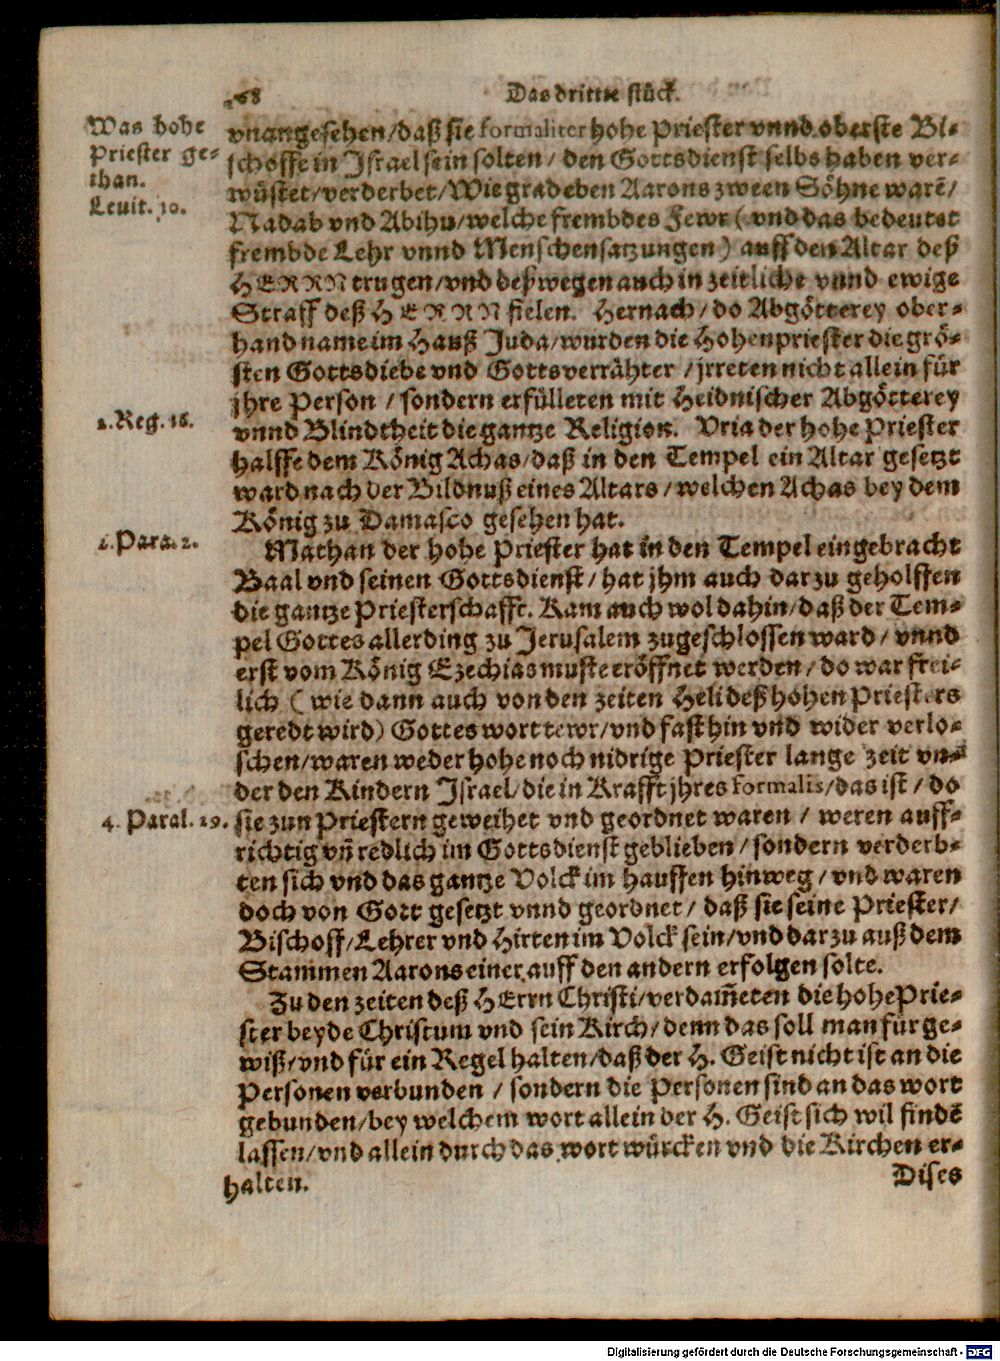 68
Das dritte stück.
Was hohe
Priester ge-
than.
Leuit. 10.
vnangesehen/daß sie formaliter hohe Priester vnnd oberste Bi-
schoffe in Israel sein solten/ den Gottsdienst selbs haben ver-
wüstet/verderbet/Wie grad eben Aarons zween Söhne warē/
Nadab vnd Abihu/welche frembdes Fewr (vnd das bedeutet
frembde Lehr vnnd Menschensatzungen) auff den Altar deß
HERRN trugen/vnd deßwegen auch in zeitliche vnnd ewige
Straff deß HERRN fielen. Hernach/do Abgötterey ober-
hand name im Hauß Juda/wurden die Hohenpriester die grö-
sten Gottsdiebe vnd Gottsverrähter /jrreten nicht allein für
jhre Person / sondern erfülleten mit Heidnischer Abgötterey
2.Reg. 16.
vnnd Blindtheit die gantze Religion. Vria der hohe Priester
halffe dem König Achas/daß in den Tempel ein Altar gesetzt
ward nach der Bildnuß eines Altars/welchen Achas bey dem
König zu Damasco gesehen hat.
2.Para. 2.
Mathan der hohe Priester hat in den Tempel eingebracht
Baal vnd seinen Gottsdienst/hat jhm auch darzu geholffen
die gantze Priesterschafft. Kam auch wol dahin/daß der Tem-
pel Gottes allerding zu Jerusalem zugeschlossen ward/ vnnd
erst vom König Ezechias muste eröffnet werden/do war frei-
lich (wie dann auch von den zeiten Heli deß hohen Priesters
geredt wird) Gottes wort tewr/vnd fast hin vnd wider verlo-
schen/waren weder hohe noch nidrige Priester lange zeit vn-
der den Kindern Israel/die in Krafft jhres formalis/das ist/ do
4. Paral. 29.
sie zun Priestern geweihet vnd geordnet waren / weren auff-
richtig vn̄ redlich im Gottsdienst geblieben/sondern verderb-
ten sich vnd das gantze Volck im hauffen hinweg/vnd waren
doch von Gott gesetzt vnnd geordnet/ daß sie seine Priester/
Bischoff/Lehrer vnd Hirten im Volck sein/vnd darzu auß dem
Stammen Aarons einer auff den andern erfolgen solte.
Zu den zeiten deß HErrn Christi/verdam̄eten die hohe Prie-
ster beyde Christum vnd sein Kirch/denn das soll man für ge-
wiß/vnd für ein Regel halten/daß der H. Geist nicht ist an die
Personen verbunden / sondern die Personen sind an das wort
gebunden/bey welchem wort allein der H. Geist sich wil findē
lassen/vnd allein durch das wort würcken vnd die Kirchen er-
halten.
Dises
Digitalisierung gefördert durch die Deutsche Forschungsgemeinschaft - DFG